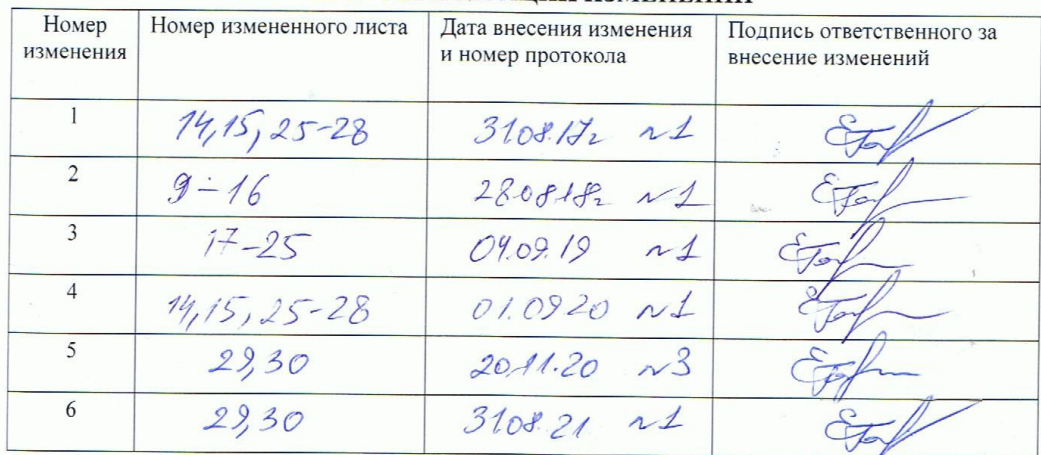 Номер изменения | Номер измененного листа | Дата внесения изменения и номер протокола | Подпись ответственного за внесение изменений
1 | 14,15, 25-28 | 31.08.17г №1
2 | 9-16 | 28.08.18г №1
3 | 17-25 | 04.09.19 №1
4 | 14,15, 25-28 | 01.09.20 №1
5 | 29,30 | 20.11.20 №3
6 | 29,30 | 31.08.21 №1